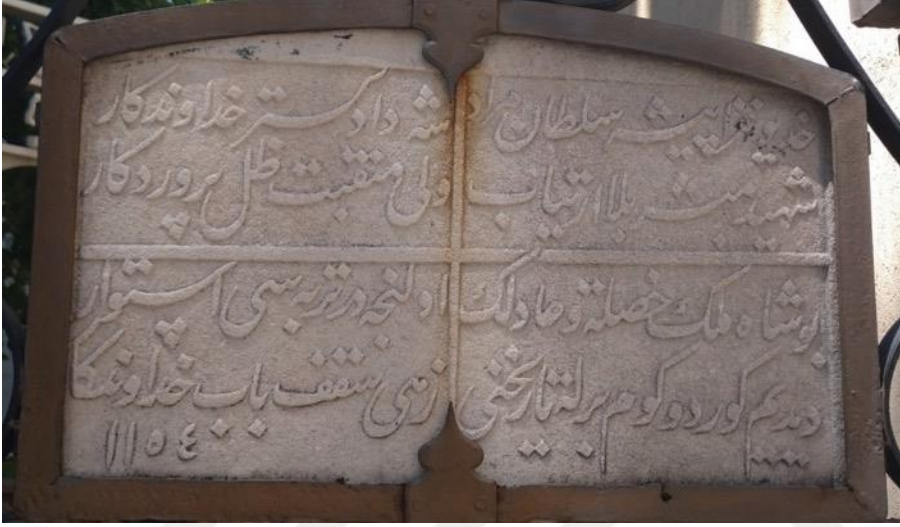 خديو غزا پيشه سلطان مراد شه داد كستر خداوندكار
شهيد مبشر بلا ارتياب ولى منقبت ظل پروردكار
بو شاه ملك خصلة و عادلك اولنجه در تربه سى استوار
ديديم كوردوكوم برله تاريخنى زهى سقف باب خداوندكار
١١٥٤